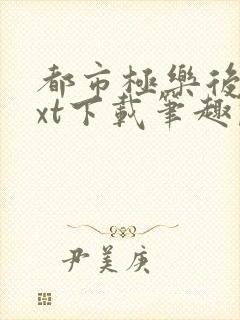 都市極樂後
xt下載筆趣
尹美庚